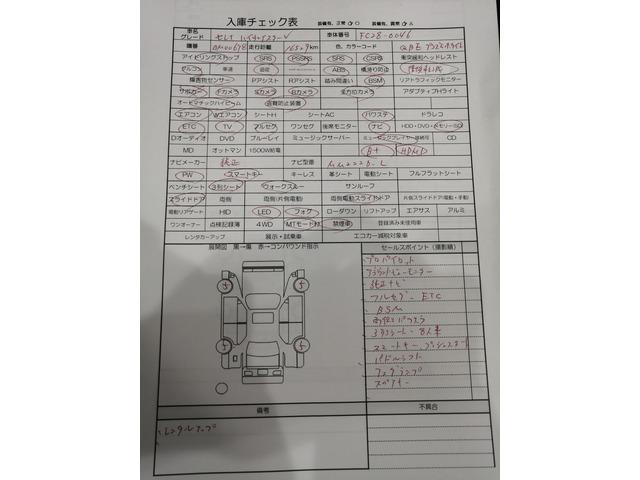 入庫チェック表 装備有、正常 ○ 装備有、異常 △
車名 グレード セレナ ハイウェイスターV 車体番号 FC28-0046
機番 走行距離 16529km 色、カラーコード QAB
アイドリングストップ SRS PSSRS SRS CSRS 衝突緩和ヘッドレスト
ABS 横滑り防止
障害物センサー Pアシスト Rアシスト 踏み間違い BSM リアトラフィックモニター
サポカー Fカメラ Sカメラ Bカメラ 全方位カメラ アダプティブHライト
オートマチックハイビーム 盗難防止装置
エアコン Wエアコン シートH シートAC パワステ ドラレコ
ETC TV フルセグ ワンセグ 後席モニター ナビ HDD・DVD・メモリーSD
Dオーディオ DVD ブルーレイ ミュージックサーバー ミュージックプレイヤー接続可 CD
MD オットマン 1500W給電 B+ HDMI
ナビメーカー 純正 ナビ型番
PW スマートキー キーレス 革シート 電動シート フルフラットシート
ベンチシート 3列シート ウォークスルー サンルーフ
スライドドア 両側 両側(片側電動) 両側電動スライドドア 片側スライドドア(電動・手動)
電動リアゲート HID LED フォグ ローダウン リフトアップ エアサス アルミ
ワンオーナー 点検記録簿 4WD MTモード付 禁煙車 登録済み未使用車
レンタカーアップ 展示・試乗車 エコカー減税対象車
展開図 黒→傷 赤→コンパウンド指示 セールスポイント(撮影順)
プロパイロット
アラウンドビューモニター
純正ナビ
フルセグ ETC
BSM
両側パワスラ
3列シート 8人乗
スマートキー プッシュスタート
パドルシフト
フォグランプ
スペアキー
5 5
5 5
備考 不具合
レンタルアップ